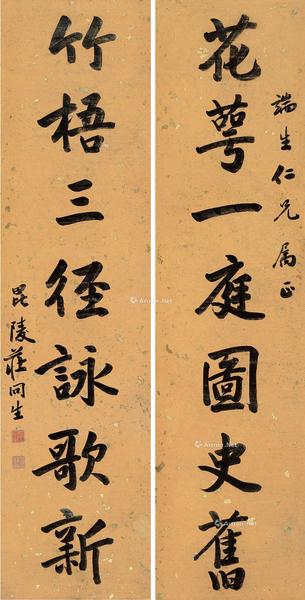 端生仁兄属正
花萼一庭圖史舊
竹梧三徑詠歌新
毘陵莊同生